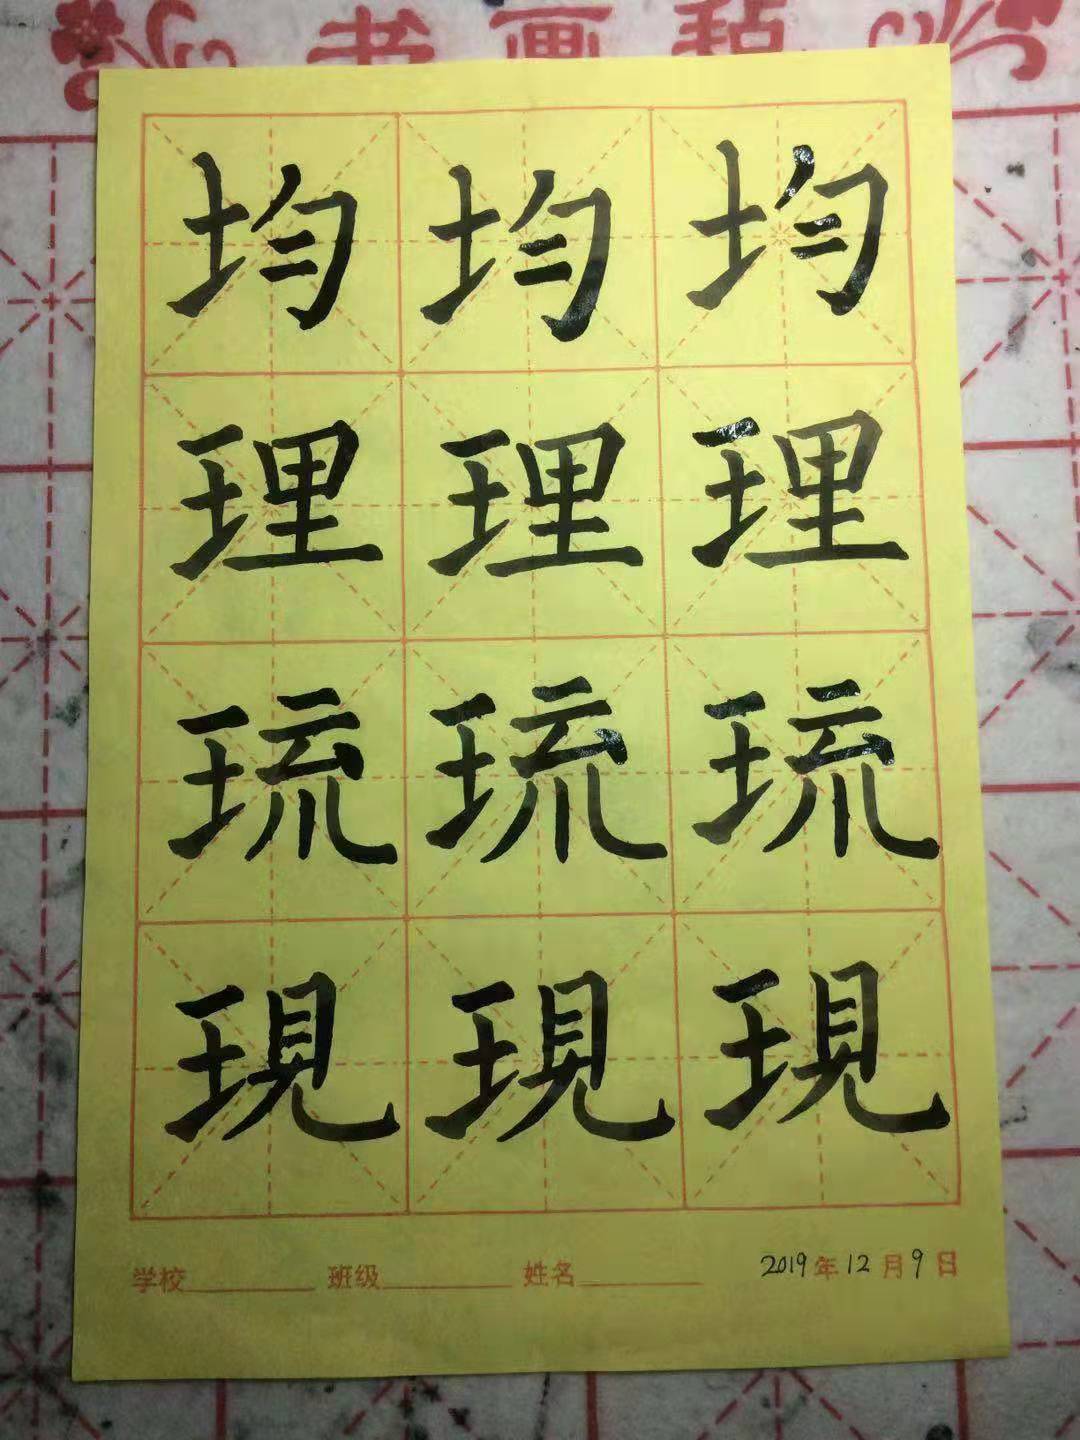 书画毡
均均均
理理理
琉琉琉
現現現
学校 班级 姓名 2019年12月9日